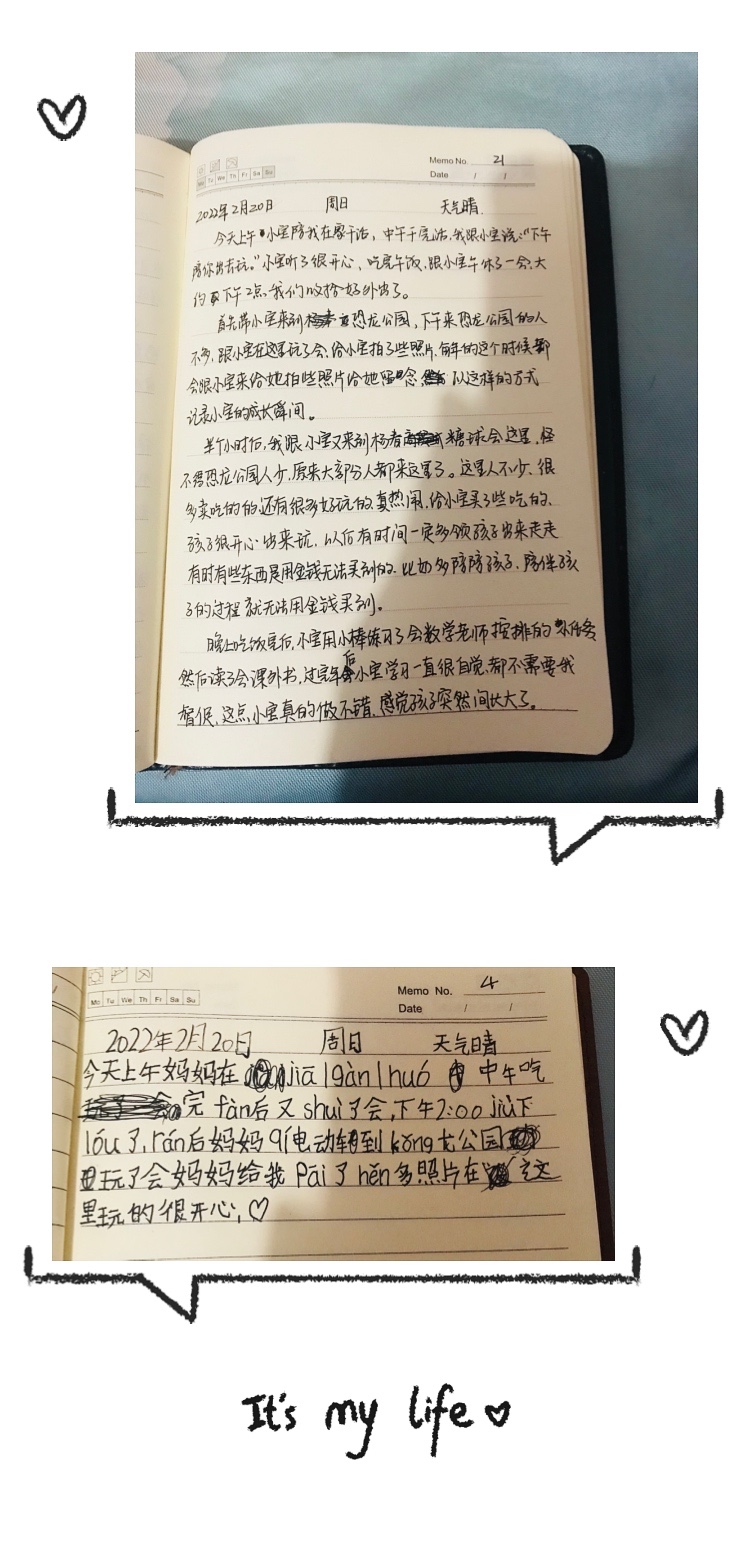 Memo No. 21
Mo Tu We Th Fr Sa Su
Date / /
2022年2月20日 周日 天气晴.
今天上午小宝陪我在家干活，中午干完活，我跟小宝说："下午
陪你出去玩。"小宝听了很开心，吃完午饭，跟小宝午休了一会，大
约下午2点，我们收拾好外出了。
首先带小宝来到恐龙公园，下午来恐龙公园的人
不多，跟小宝在这里玩了会，给小宝拍了些照片，每年的这个时候都
会跟小宝来给她拍些照片给她留念 以这样的方式
记录小宝的成长瞬间。
半个小时后，我跟小宝又来到 糖球会这里，怪
不得恐龙公园人少，原来大部分人都来这里了。这里人不少，很
多卖吃的的，还有很多好玩的，真热闹，给小宝买了些吃的，
孩子很开心出来玩，以后有时间一定多领孩子出来走走
有时有些东西是用金钱无法买到的，比如多陪陪孩子，陪伴孩
子的过程就无法用金钱买到。
晚上吃饭完后，小宝用小棒练习了会数学老师 排的 任务
然后读了会课外书，过完年后小宝学习一直很自觉，都不需要我
督促，这点，小宝真的做不错，感觉孩子突然间长大了。
Memo No. 4
Mo Tu We Th Fr Sa Su
Date / /
2022年2月20日 周日 天气晴
今天上午妈妈在jiā lgàn lhuó 中午吃
完 fàn后又shuì了会，下午2:00 jiù下
lóu了，rán后妈妈 qí电动车到kǒng龙公园
玩了会妈妈给我 Pāi了hěn多照片在 这
里玩的很开心，♡
It's my life ♡